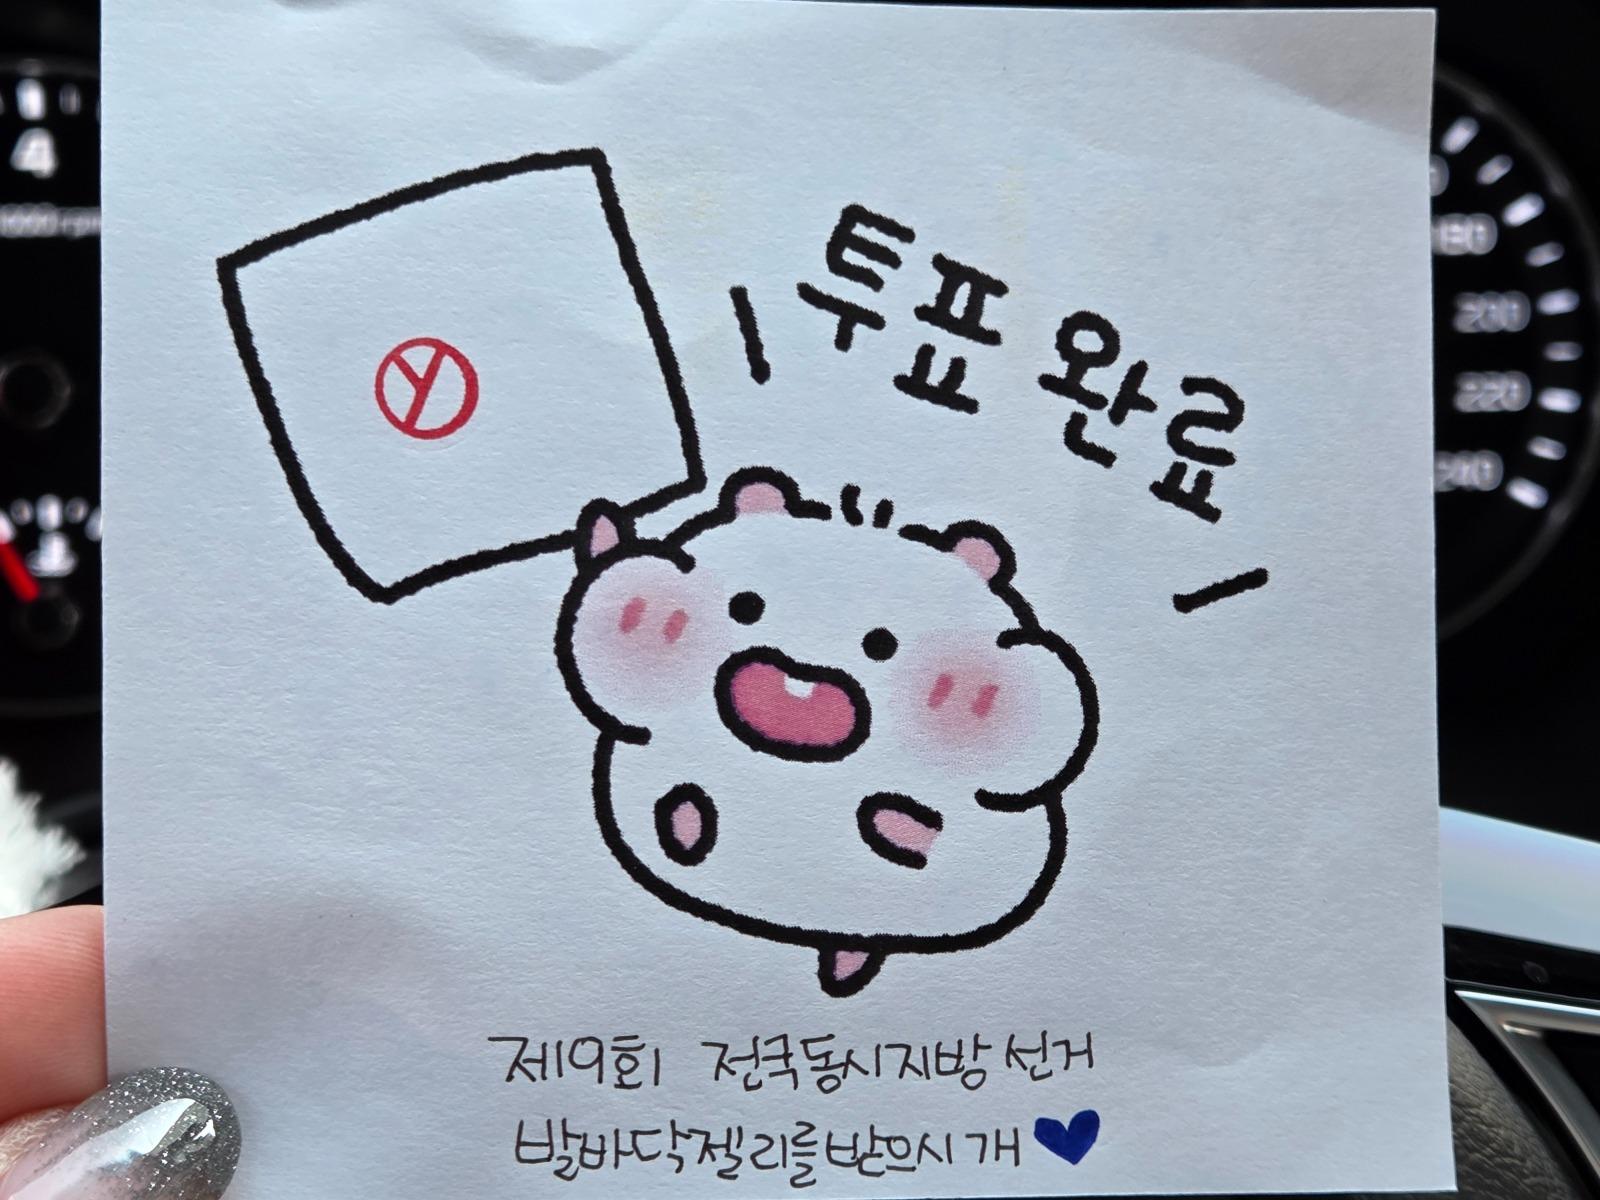 투표 완료
제9회 전국동시지방선거
발바닥젤리를받으시개
4
1000 rpm
180
200
220
240